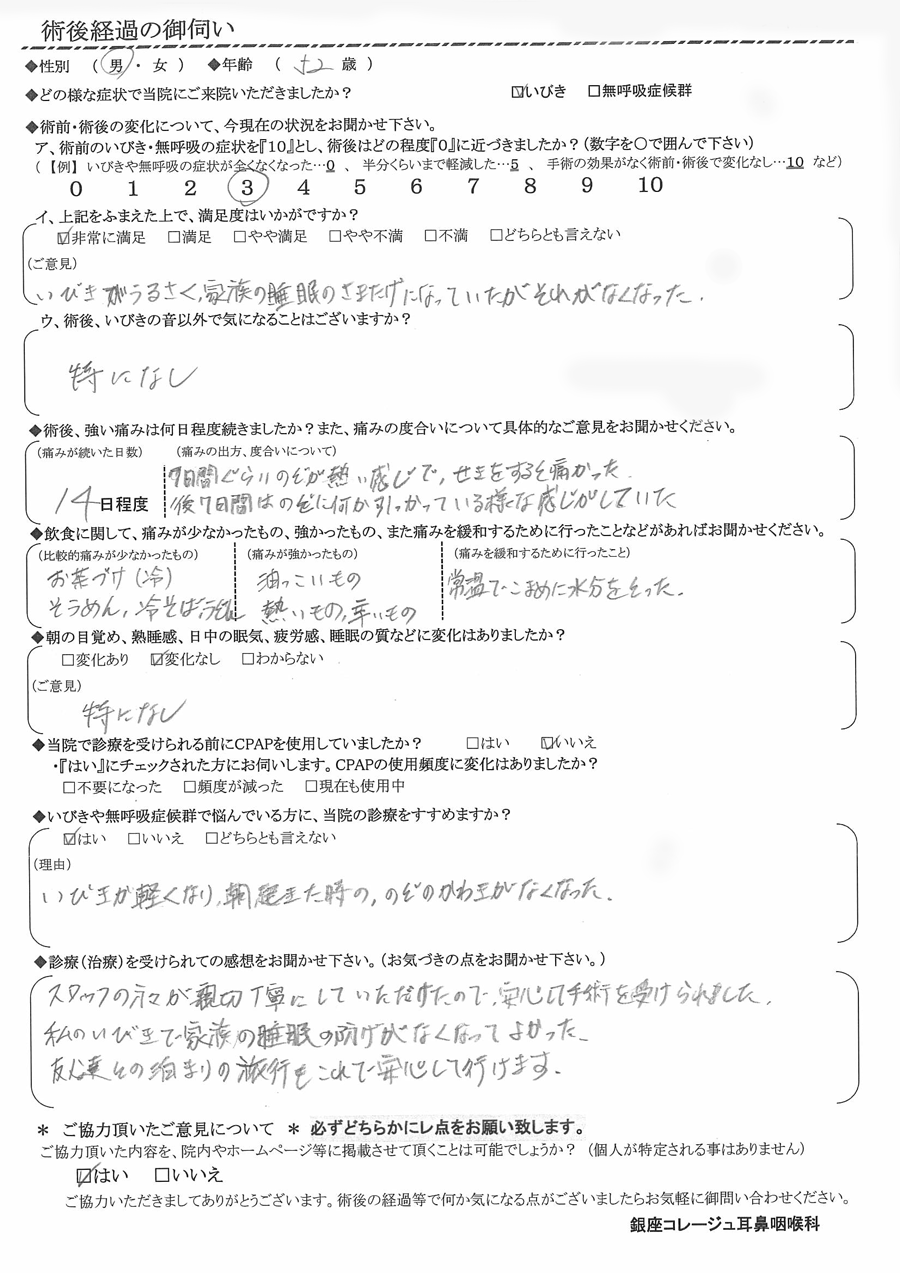 術後経過の御伺い
◆性別 ( 男 ・ 女 ) ◆年齢 ( 52 歳 )
◆どの様な症状で当院にご来院いただきましたか? ☑いびき □無呼吸症候群
◆術前・術後の変化について、今現在の状況をお聞かせ下さい。
ア、術前のいびき・無呼吸の症状を『10』とし、術後はどの程度『0』に近づきましたか?(数字を○で囲んで下さい)
(【例】いびきや無呼吸の症状が全くなくなった…0 、 半分くらいまで軽減した…5 、 手術の効果がなく術前・術後で変化なし…10 など)
0 1 2 3 4 5 6 7 8 9 10
イ、上記をふまえた上で、満足度はいかがですか?
☑非常に満足 □満足 □やや満足 □やや不満 □不満 □どちらとも言えない
(ご意見)
いびきがうるさく、家族の睡眠のさまたげになっていたがそれがなくなった.
ウ、術後、いびきの音以外で気になることはございますか?
特になし
◆術後、強い痛みは何日程度続きましたか?また、痛みの度合いについて具体的なご意見をお聞かせください。
(痛みが続いた日数) (痛みの出方、度合いについて)
7日間ぐらいのどが熱い感じで、せきをすると痛かった.
14日程度 後7日間はのどに何か引っかっている様な感じがしていた
◆飲食に関して、痛みが少なかったもの、強かったもの、また痛みを緩和するために行ったことなどがあればお聞かせください。
(比較的痛みが少なかったもの) (痛みが強かったもの) (痛みを緩和するために行ったこと)
お茶づけ(冷) 油っこいもの 常温でこまめに水分をとった.
そうめん、冷そばうどん 熱いもの、辛いもの
◆朝の目覚め、熟睡感、日中の眠気、疲労感、睡眠の質などに変化はありましたか?
□変化あり ☑変化なし □わからない
(ご意見)
特になし
◆当院で診療を受けられる前にCPAPを使用していましたか? □はい ☑いいえ
・『はい』にチェックされた方にお伺いします。CPAPの使用頻度に変化はありましたか?
□不要になった □頻度が減った □現在も使用中
◆いびきや無呼吸症候群で悩んでいる方に、当院の診療をすすめますか?
☑はい □いいえ □どちらとも言えない
(理由)
いびきが軽くなり、朝起きた時の、のどのかわきがなくなった.
◆診療(治療)を受けられての感想をお聞かせ下さい。(お気づきの点をお聞かせ下さい。)
スタッフの方々が親切丁寧にしていただけたので、安心して手術を受けられました.
私のいびきで家族の睡眠の防げがなくなってよかった.
友人達との泊まりの旅行もこれで安心して行けます.
* ご協力頂いたご意見について * 必ずどちらかにレ点をお願い致します。
ご協力頂いた内容を、院内やホームページ等に掲載させて頂くことは可能でしょうか?(個人が特定される事はありません)
☑はい □いいえ
ご協力いただきましてありがとうございます。術後の経過等で何か気になる点がございましたらお気軽に御問い合わせください。
銀座コレージュ耳鼻咽喉科